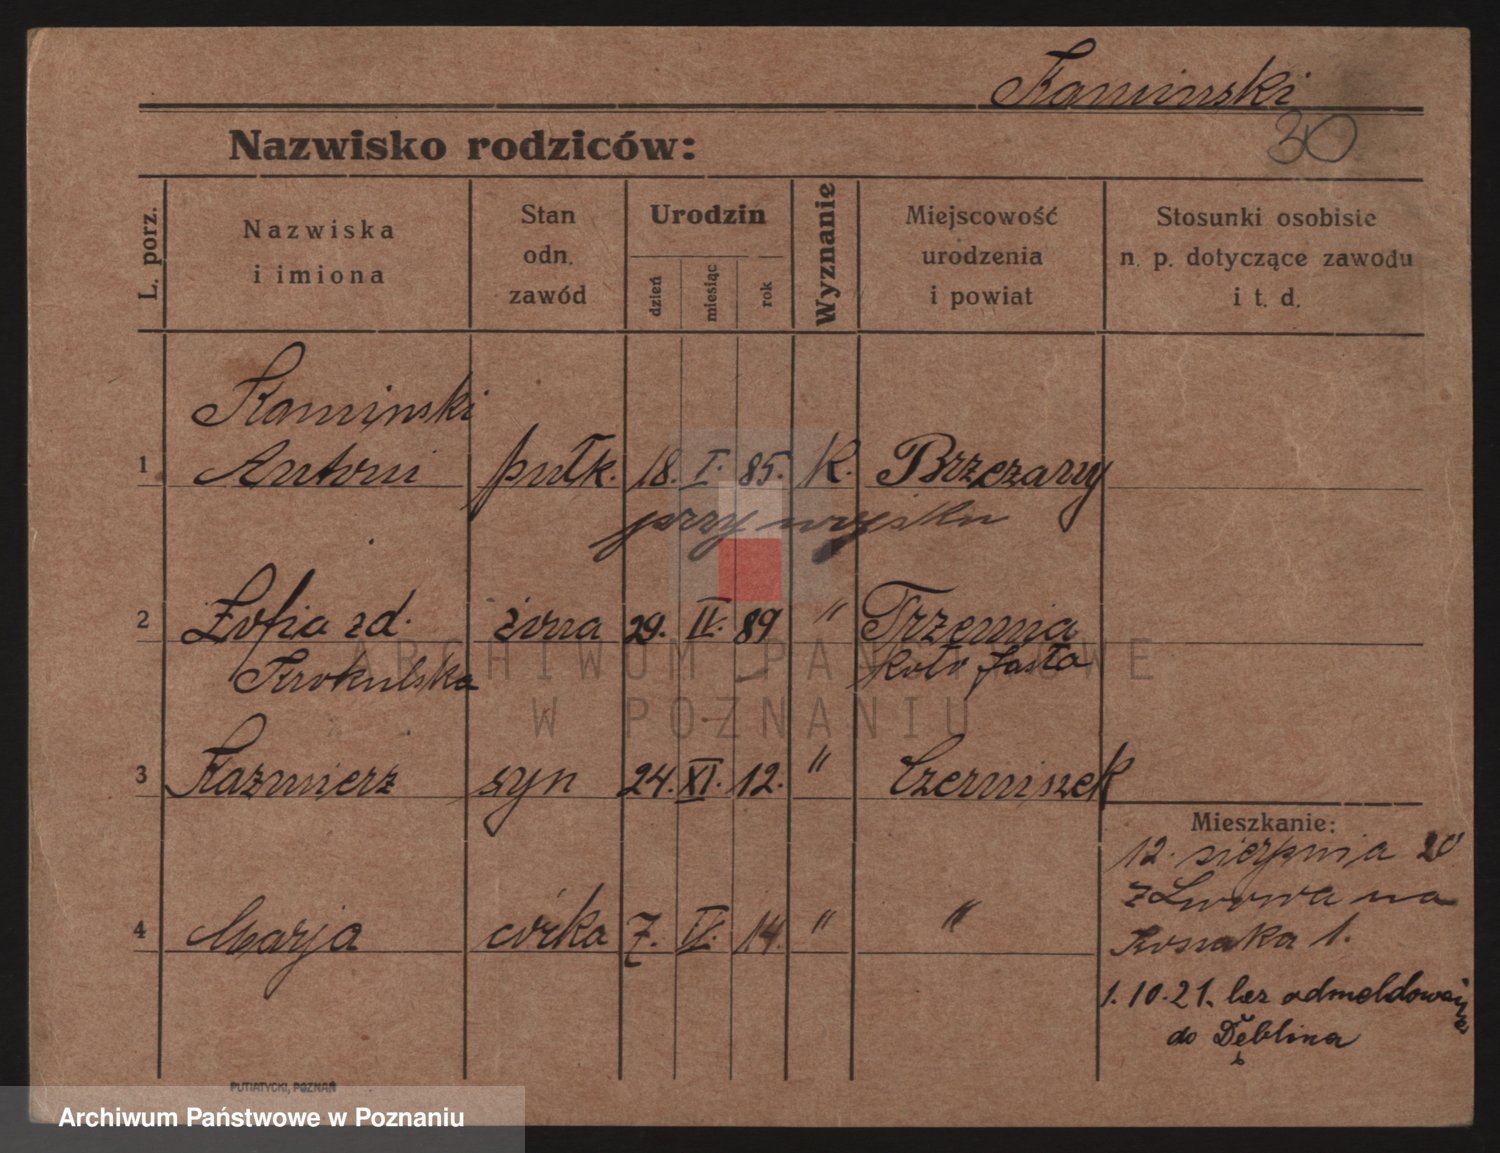 Kaminski
30
Nazwisko rodziców:
L. porz.
Nazwiska
i imiona
Stan
odn.
zawód
Urodzin
dzień
miesiąc
rok
Wyznanie
Miejscowość
urodzenia
i powiat
Stosunki osobiste
n. p. dotyczące zawodu
i t. d.
Kaminski
1 Antoni pułk. 18. I. 85. K. Brzeżany
przy wojsku
2 Zofia zd. żona 29. IV. 89 " Trzemia
Krokulska koło Jasła
3 Kazmierz syn 24. XI. 12. "
Mieszkanie:
12. sierpnia 20
z Lwowa na
4 Marja córka 7. IV. 14. " "
Kossaka 1.
1.10.21. bez odmeldowania
do Dęblina
PUTIATYCKI, POZNAŃ
ARCHIWUM PAŃSTWOWE
W POZNANIU
Archiwum Państwowe w Poznaniu